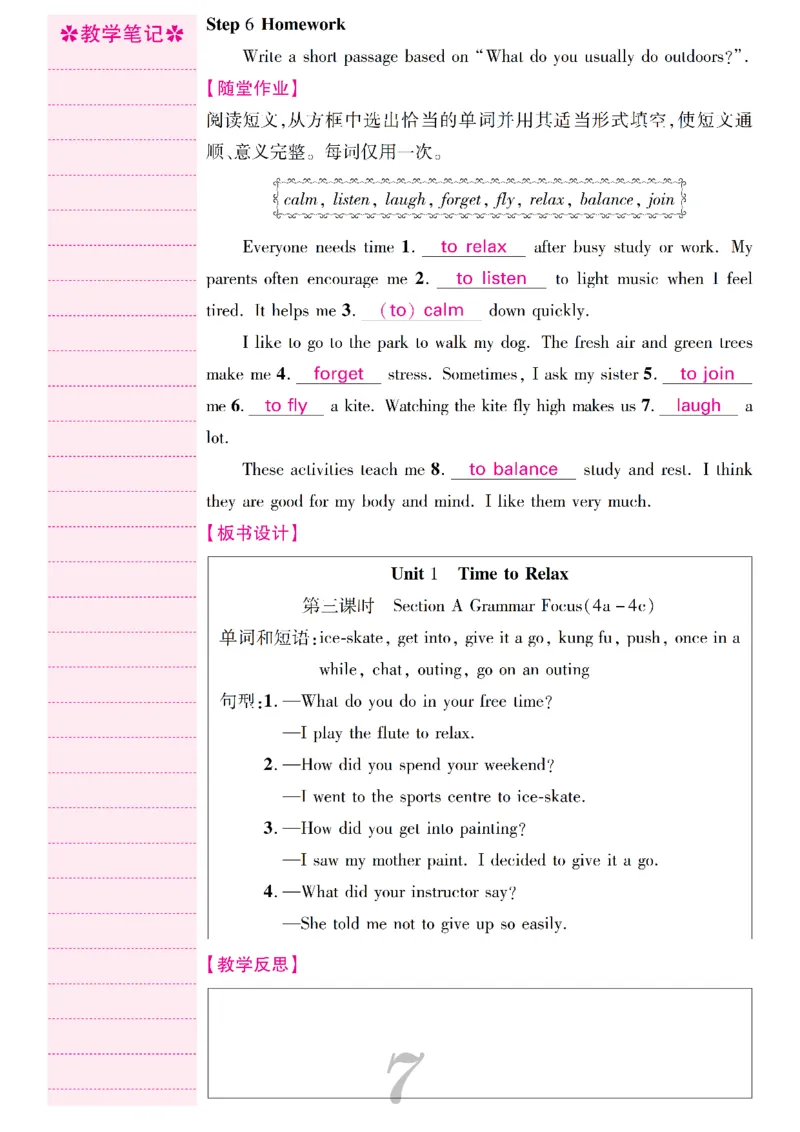 ✽教学笔记✽
Step 6 Homework
Write a short passage based on “What do you usually do outdoors?”.
【随堂作业】
阅读短文,从方框中选出恰当的单词并用其适当形式填空,使短文通
顺、意义完整。每词仅用一次。
calm, listen, laugh, forget, fly, relax, balance, join
Everyone needs time 1. to relax after busy study or work. My
parents often encourage me 2. to listen to light music when I feel
tired. It helps me 3. (to) calm down quickly.
I like to go to the park to walk my dog. The fresh air and green trees
make me 4. forget stress. Sometimes, I ask my sister 5. to join
me 6. to fly a kite. Watching the kite fly high makes us 7. laugh a
lot.
These activities teach me 8. to balance study and rest. I think
they are good for my body and mind. I like them very much.
【板书设计】
Unit 1 Time to Relax
第三课时 Section A Grammar Focus(4a-4c)
单词和短语:ice-skate, get into, give it a go, kung fu, push, once in a
while, chat, outing, go on an outing
句型:1. —What do you do in your free time?
—I play the flute to relax.
2. —How did you spend your weekend?
—I went to the sports centre to ice-skate.
3. —How did you get into painting?
—I saw my mother paint. I decided to give it a go.
4. —What did your instructor say?
—She told me not to give up so easily.
【教学反思】
7